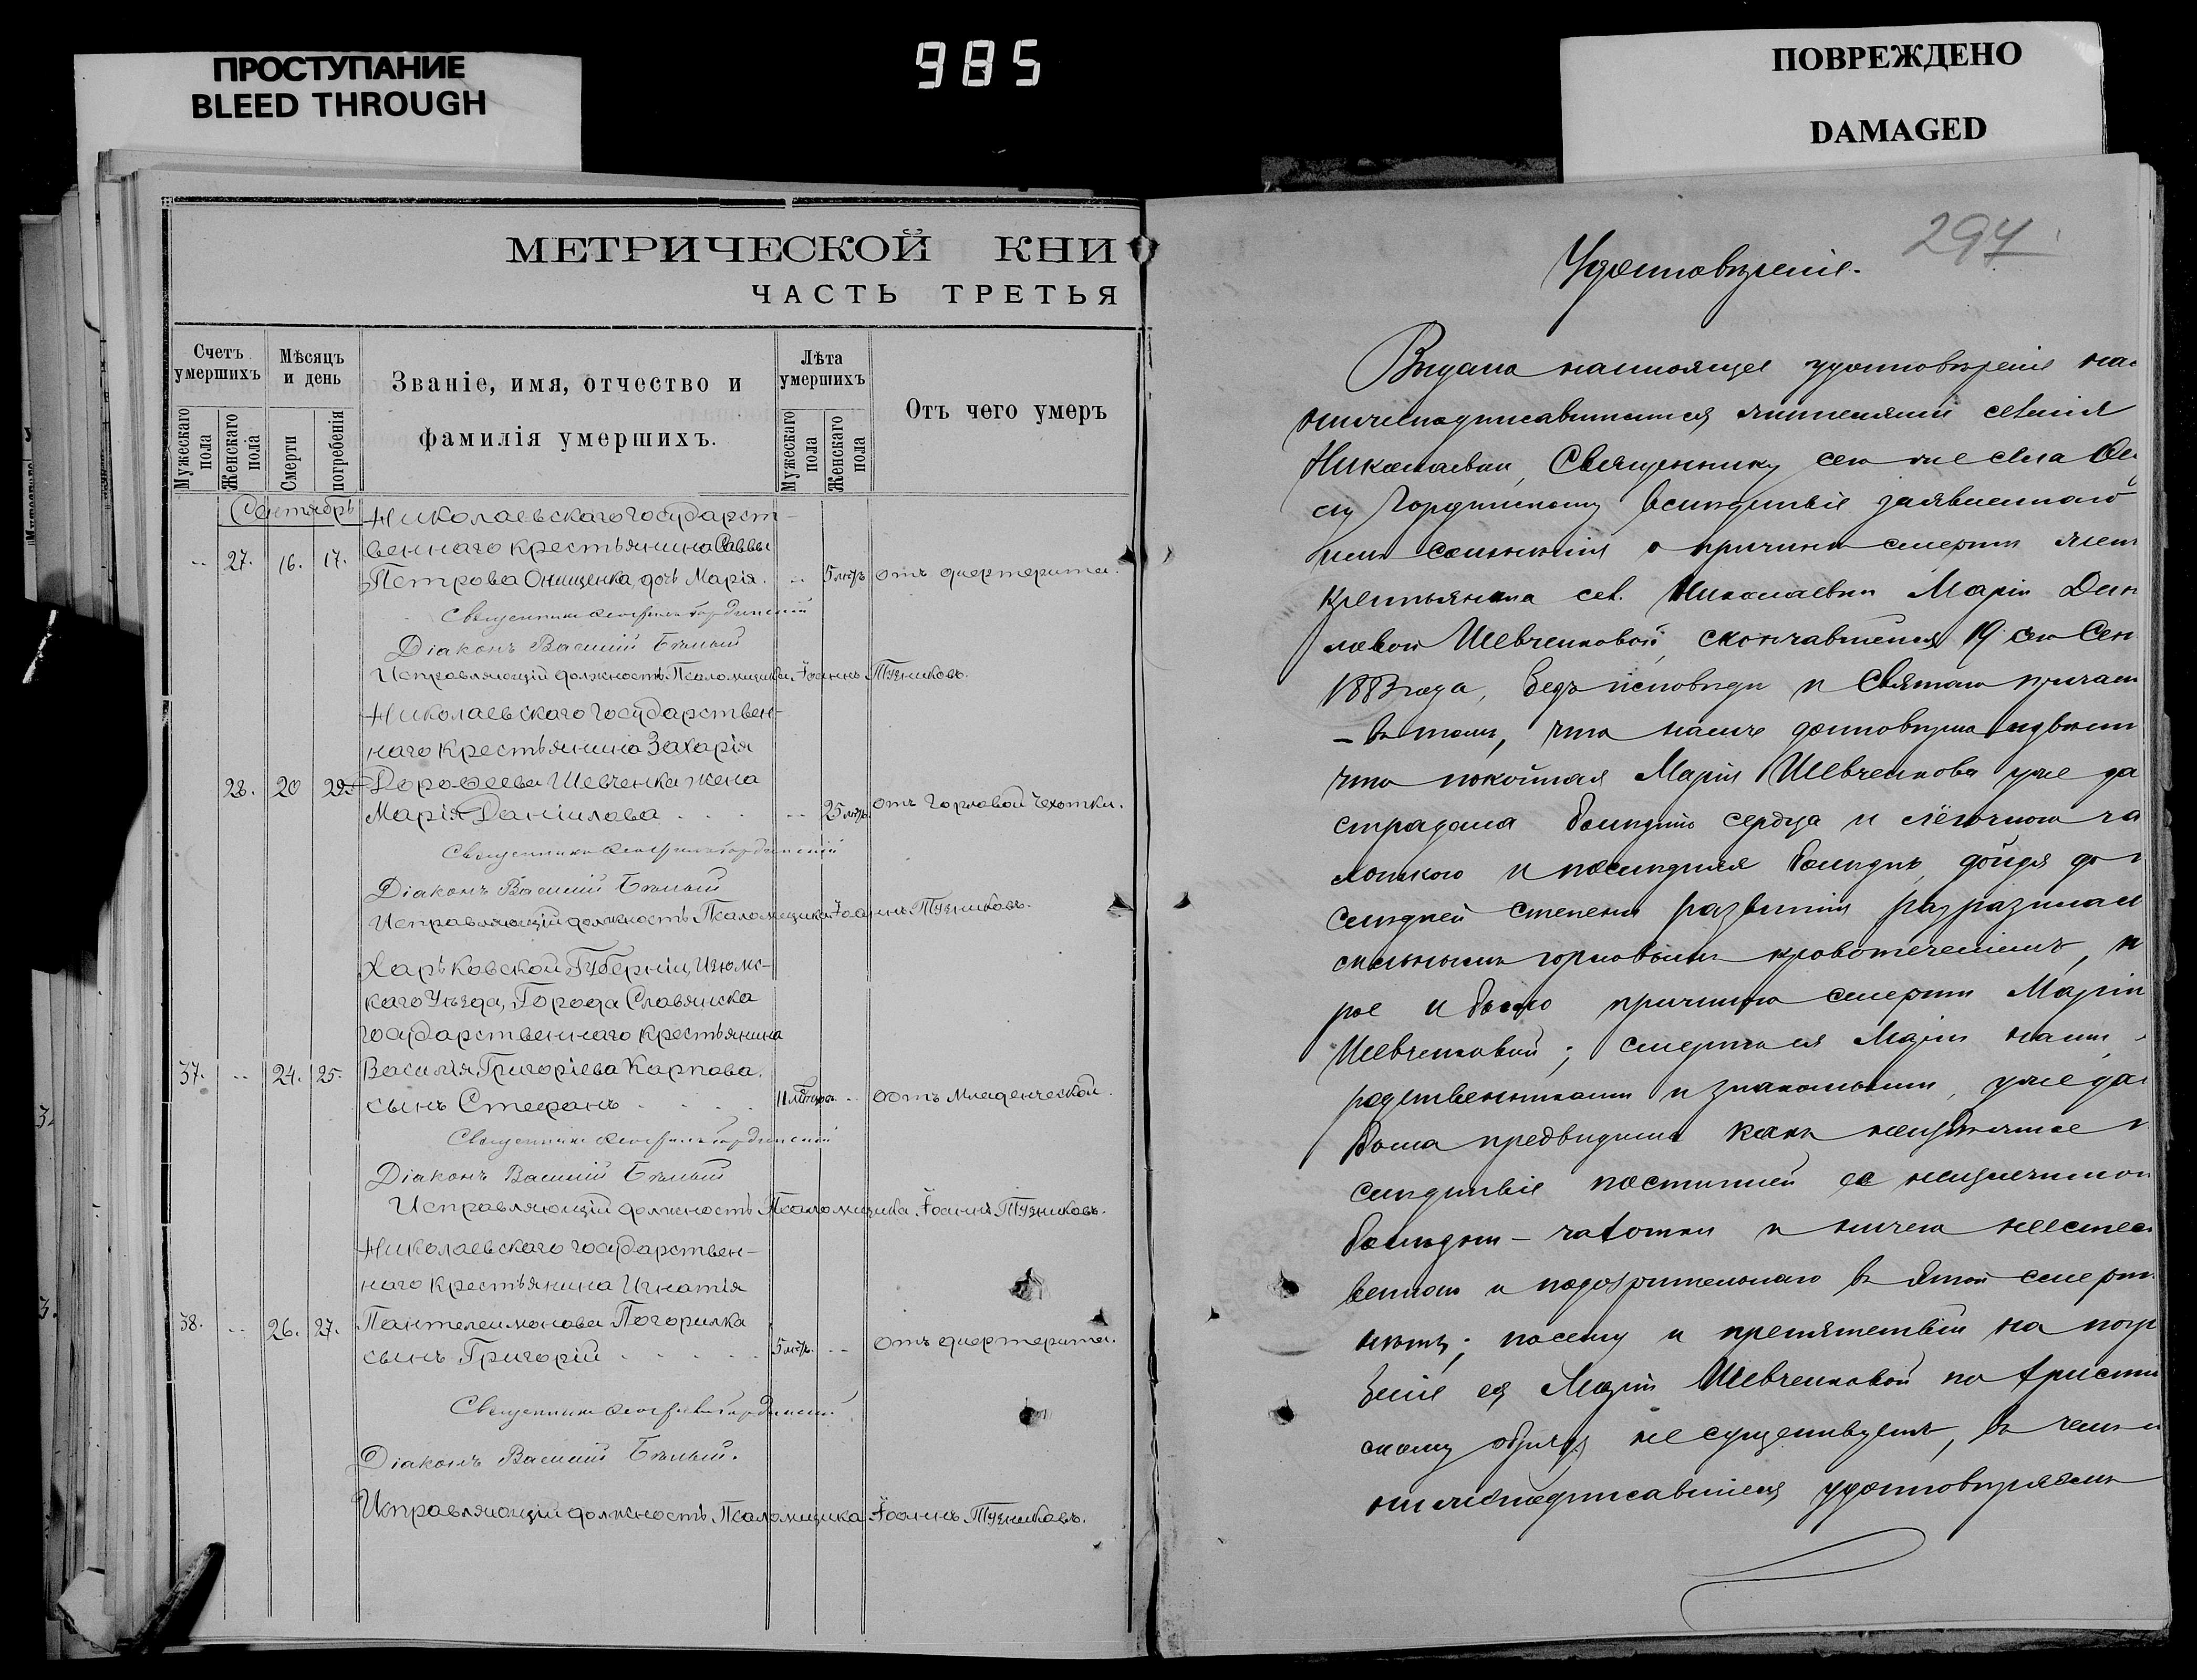 ПРОСТУПАНИЕ
BLEED THROUGH
985
ПОВРЕЖДЕНО
DAMAGED
МЕТРИЧЕСКОЙ КНИ
ЧАСТЬ ТРЕТЬЯ
Счетъ умершихъ
Мужескаго пола
Женскаго пола
Мѣсяцъ и день
Смерти
погребенія
Званіе, имя, отчество и
фамилія умершихъ.
Лѣта умершихъ
Мужескаго пола
Женскаго пола
Отъ чего умеръ
Сентябрь
Николаевскаго Государст-
веннаго крестьянина Саввы
27. 16. 17. Петрова Онищенка дочь Марія. 5 лѣтъ отъ дифтерита.
Священникъ Гординскій
Діаконъ Василій Бѣлый
Исправляющій должность Псаломщика Іоаннъ
Николаевскаго Государствен-
наго Крестьянина Захарія
28. 20 Дорофеева Шевченка жена
Марія Даніилова 25 лѣтъ отъ Горловой Чехотки.
Священникъ Гординскій
Діаконъ Василій Бѣлый
Исправляющій должность Псаломщика Іоаннъ
Харьковской Губерніи, Изюмс-
каго Уѣзда, Города Славянска
Государственнаго крестьянина
37. 24. 25. Василія Григоріева Карпова
сынъ Стефанъ 11 отъ Младенческой.
Священникъ Гординскій
Діаконъ Василій Бѣлый
Исправляющій должность Псаломщика Іоаннъ
Николаевскаго Государствен-
наго Крестьянина Игнатія
38. 26. 27. Пантелеимонова Погорилка
сынъ Григорій 5 лѣтъ. отъ дифтерита.
Священникъ Гординскій
Діаконъ Василій Бѣлый.
Исправляющій должность Псаломщика Іоаннъ
294
Удостовѣреніе.
Выдано настоящее удостовѣреніе на-
нижеподписавшимися жителями селенія
Николаевки, Священнику сего же села
Гординскому вслѣдствіе заявленнаго
имъ сомнѣнія о причинѣ смерти
крестьянина сел. Николаевки Маріи Дан
ловой Шевченковой, скончавшейся 19 сего Сен
1883 года, безъ исповѣди и Святаго причащ
– въ томъ, что намъ достовѣрно извѣстн
что покойная Марія Шевченкова уже да
страдала болѣзнію сердца и лёгочною ча
хоткою и послѣдняя болѣзнь, дойдя до
слѣдней степени развитія разразилась
сильнымъ горловымъ кровотеченіемъ,
рое и было причиною смерти Маріи
Шевченковой; смерть ея Маріи нами,
родственниками и знакомыми, уже да
была предвидима какъ неизбѣжное
слѣдствіе постигшей ее неизлечимой
болѣзни – чахотки и ничего неестес
веннаго и подозрительнаго въ этой смерти
нѣтъ; посему и препятствій на погр
беніе ея Маріи Шевченковой по христі
скому обряду не существуетъ, въ чемъ
нижеподписавшіеся удостовѣряемъ